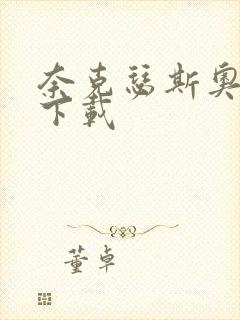 奈克瑟斯奥
下载
董卓